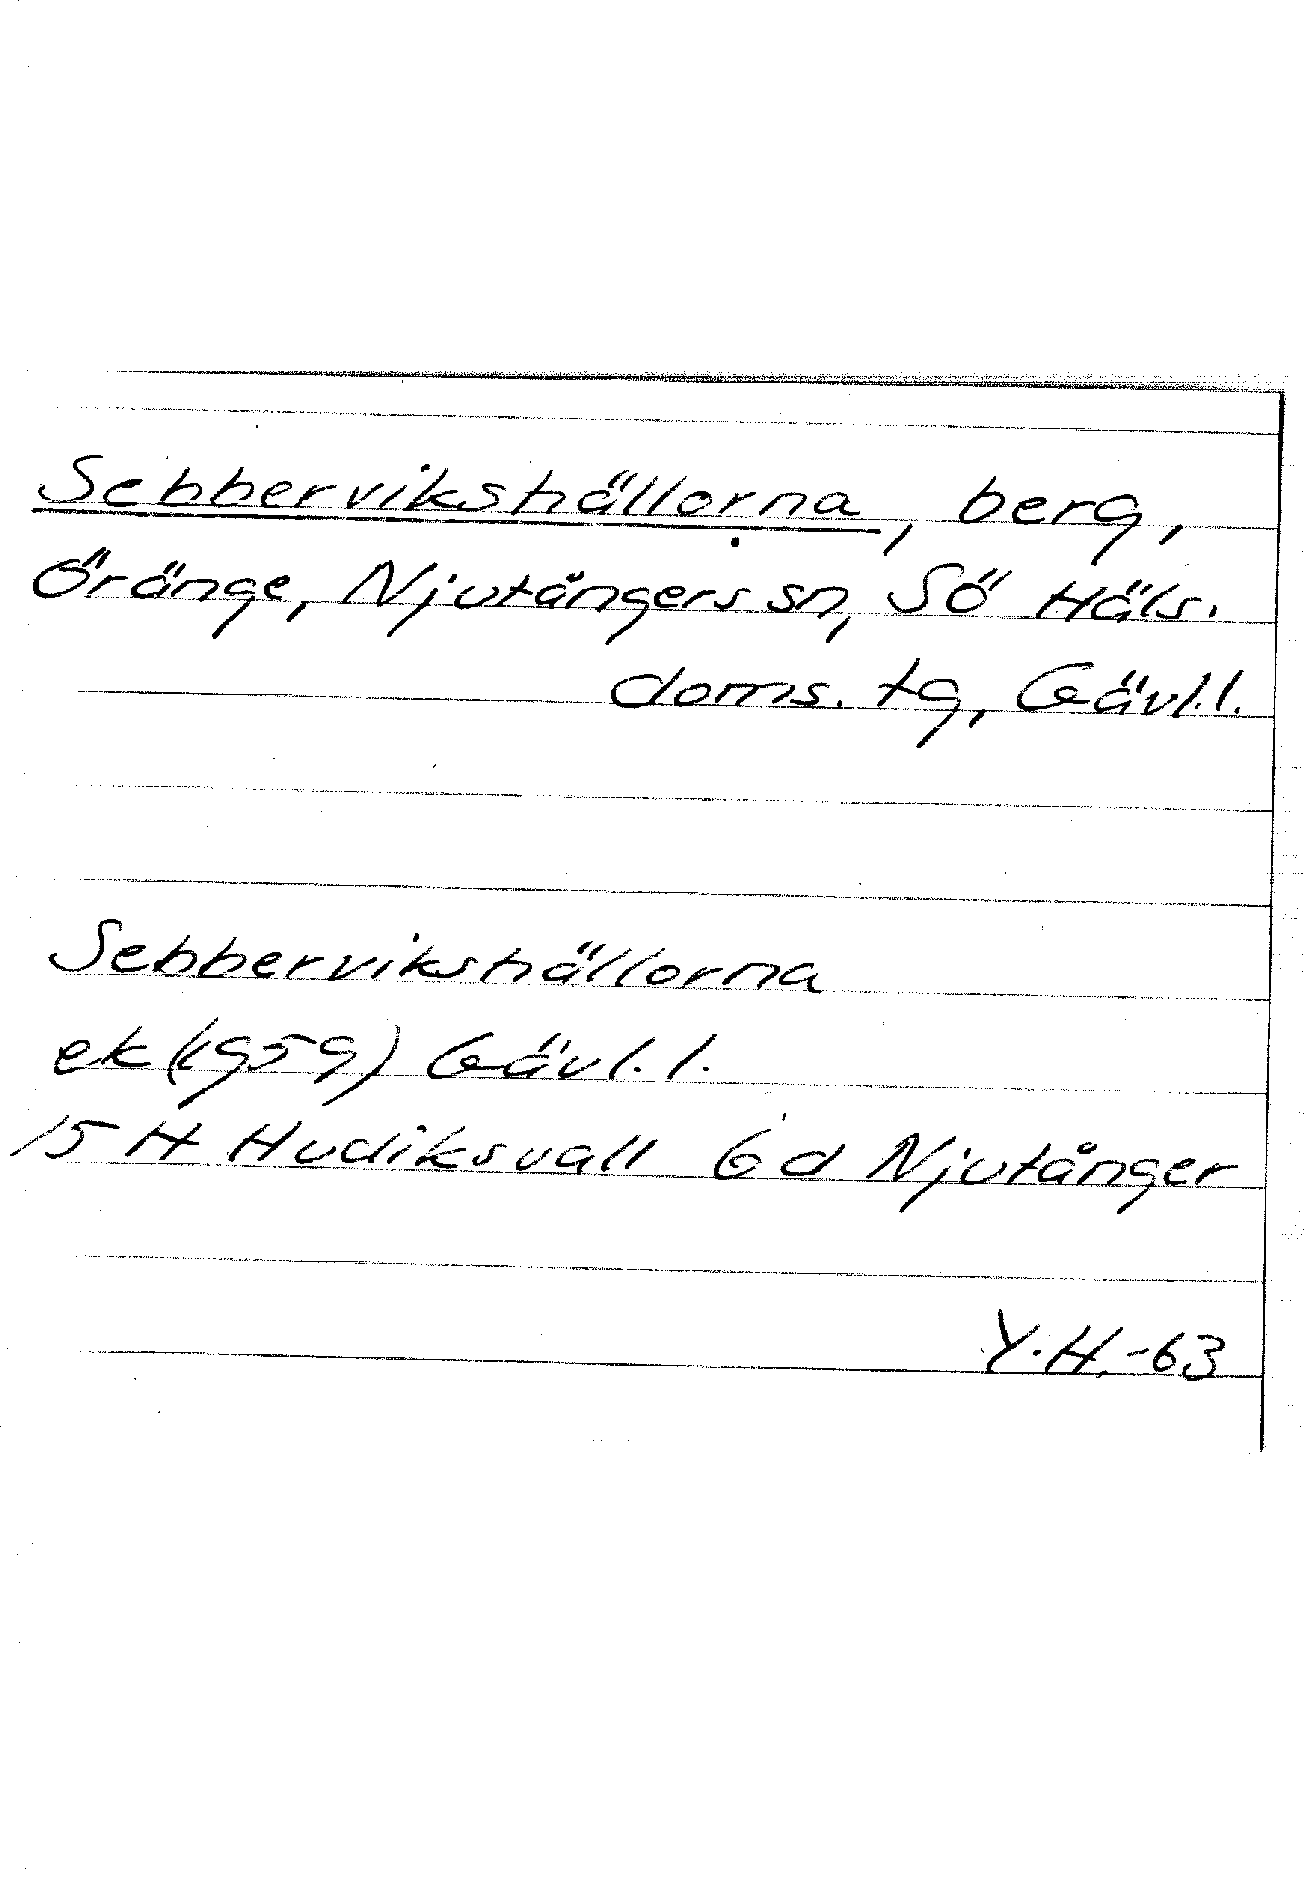 Sebbervikshällorna, berg,
Öränge, Njutångers sn, Sö Häls.
doms. tg, Gävl.l.
Sebbervikshällorna
ek (1959) Gävl. l.
15 H Hudiksvall 6 d Njutånger
Y.H.-63